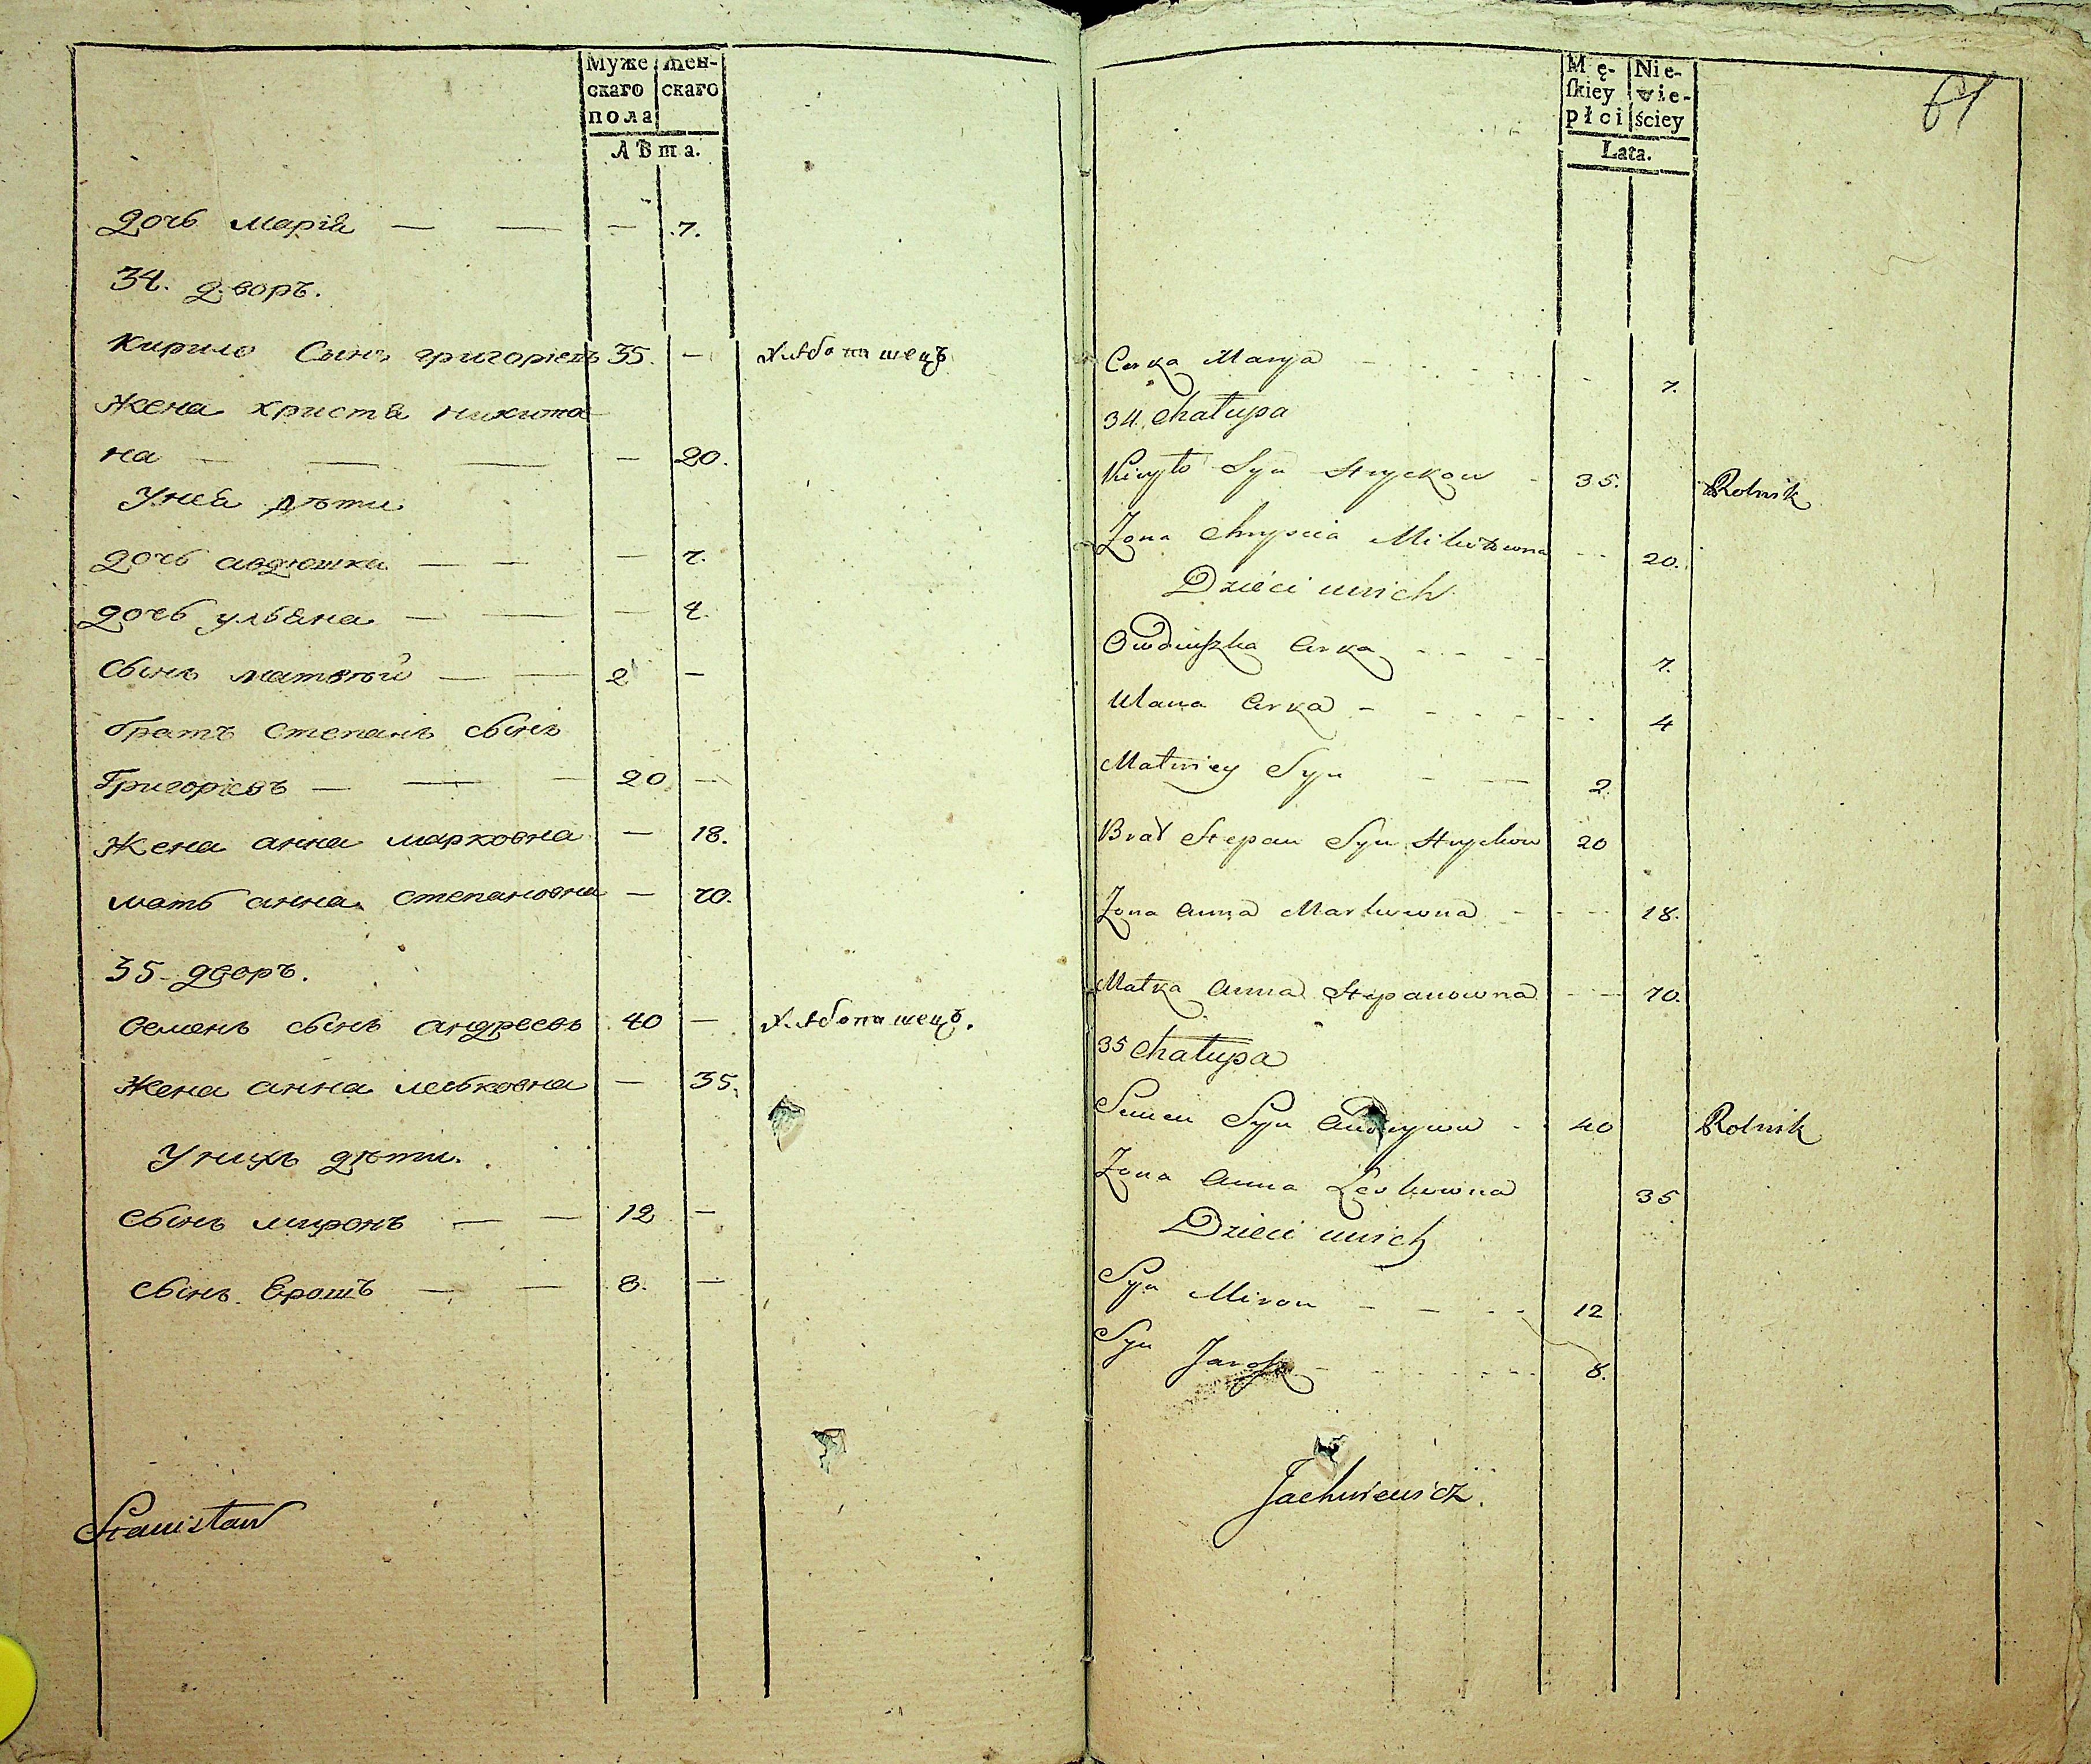 Муже
скаго
пола
жен-
скаго
лѣта.
дочь марія — — — 7.
34. дворъ.
Кирило Сынъ григоріевъ 35. — хлѣбопашецъ
Жена христя никита
на — — — — 20.
У нея дѣти
дочь авдюшка — — — 7.
дочь ульяна — — — 4.
сынъ матвѣй — — 2 —
братъ степанъ сынъ
Григоріевъ — — — 20 —
Жена анна марковна — 18.
мать анна степановна — 70.
35 дворъ.
Семенъ сынъ андреевъ 40 — хлѣбопашецъ.
Жена анна левковна — 35.
У нихъ дѣти.
сынъ миронъ — — 12 —
сынъ Ерошъ — — 8. —
Stanisław
61
Mę-
ſkiey
płci
Nie-
wie-
ściey
Lata.
Corka Marya 7.
34. Chałupa
Kiryło Syn Hryckow 35. Rolnik
Zona Chryscia Mikitowna 20.
Dzieci unich
Owdiuszka Corka 7.
Ulana Corka 4
Matwiey Syn 2.
Brat Stepan Syn Hryckow 20
Zona Anna Markowna 18.
Matka Anna Stepanowna 70.
35 Chałupa
Semen Syn 40 Rolnik
Zona Anna Lewkowna 35
Dzieci unich
Syn Miron 12
Syn Jarosz 8.
Jachwiewicz.